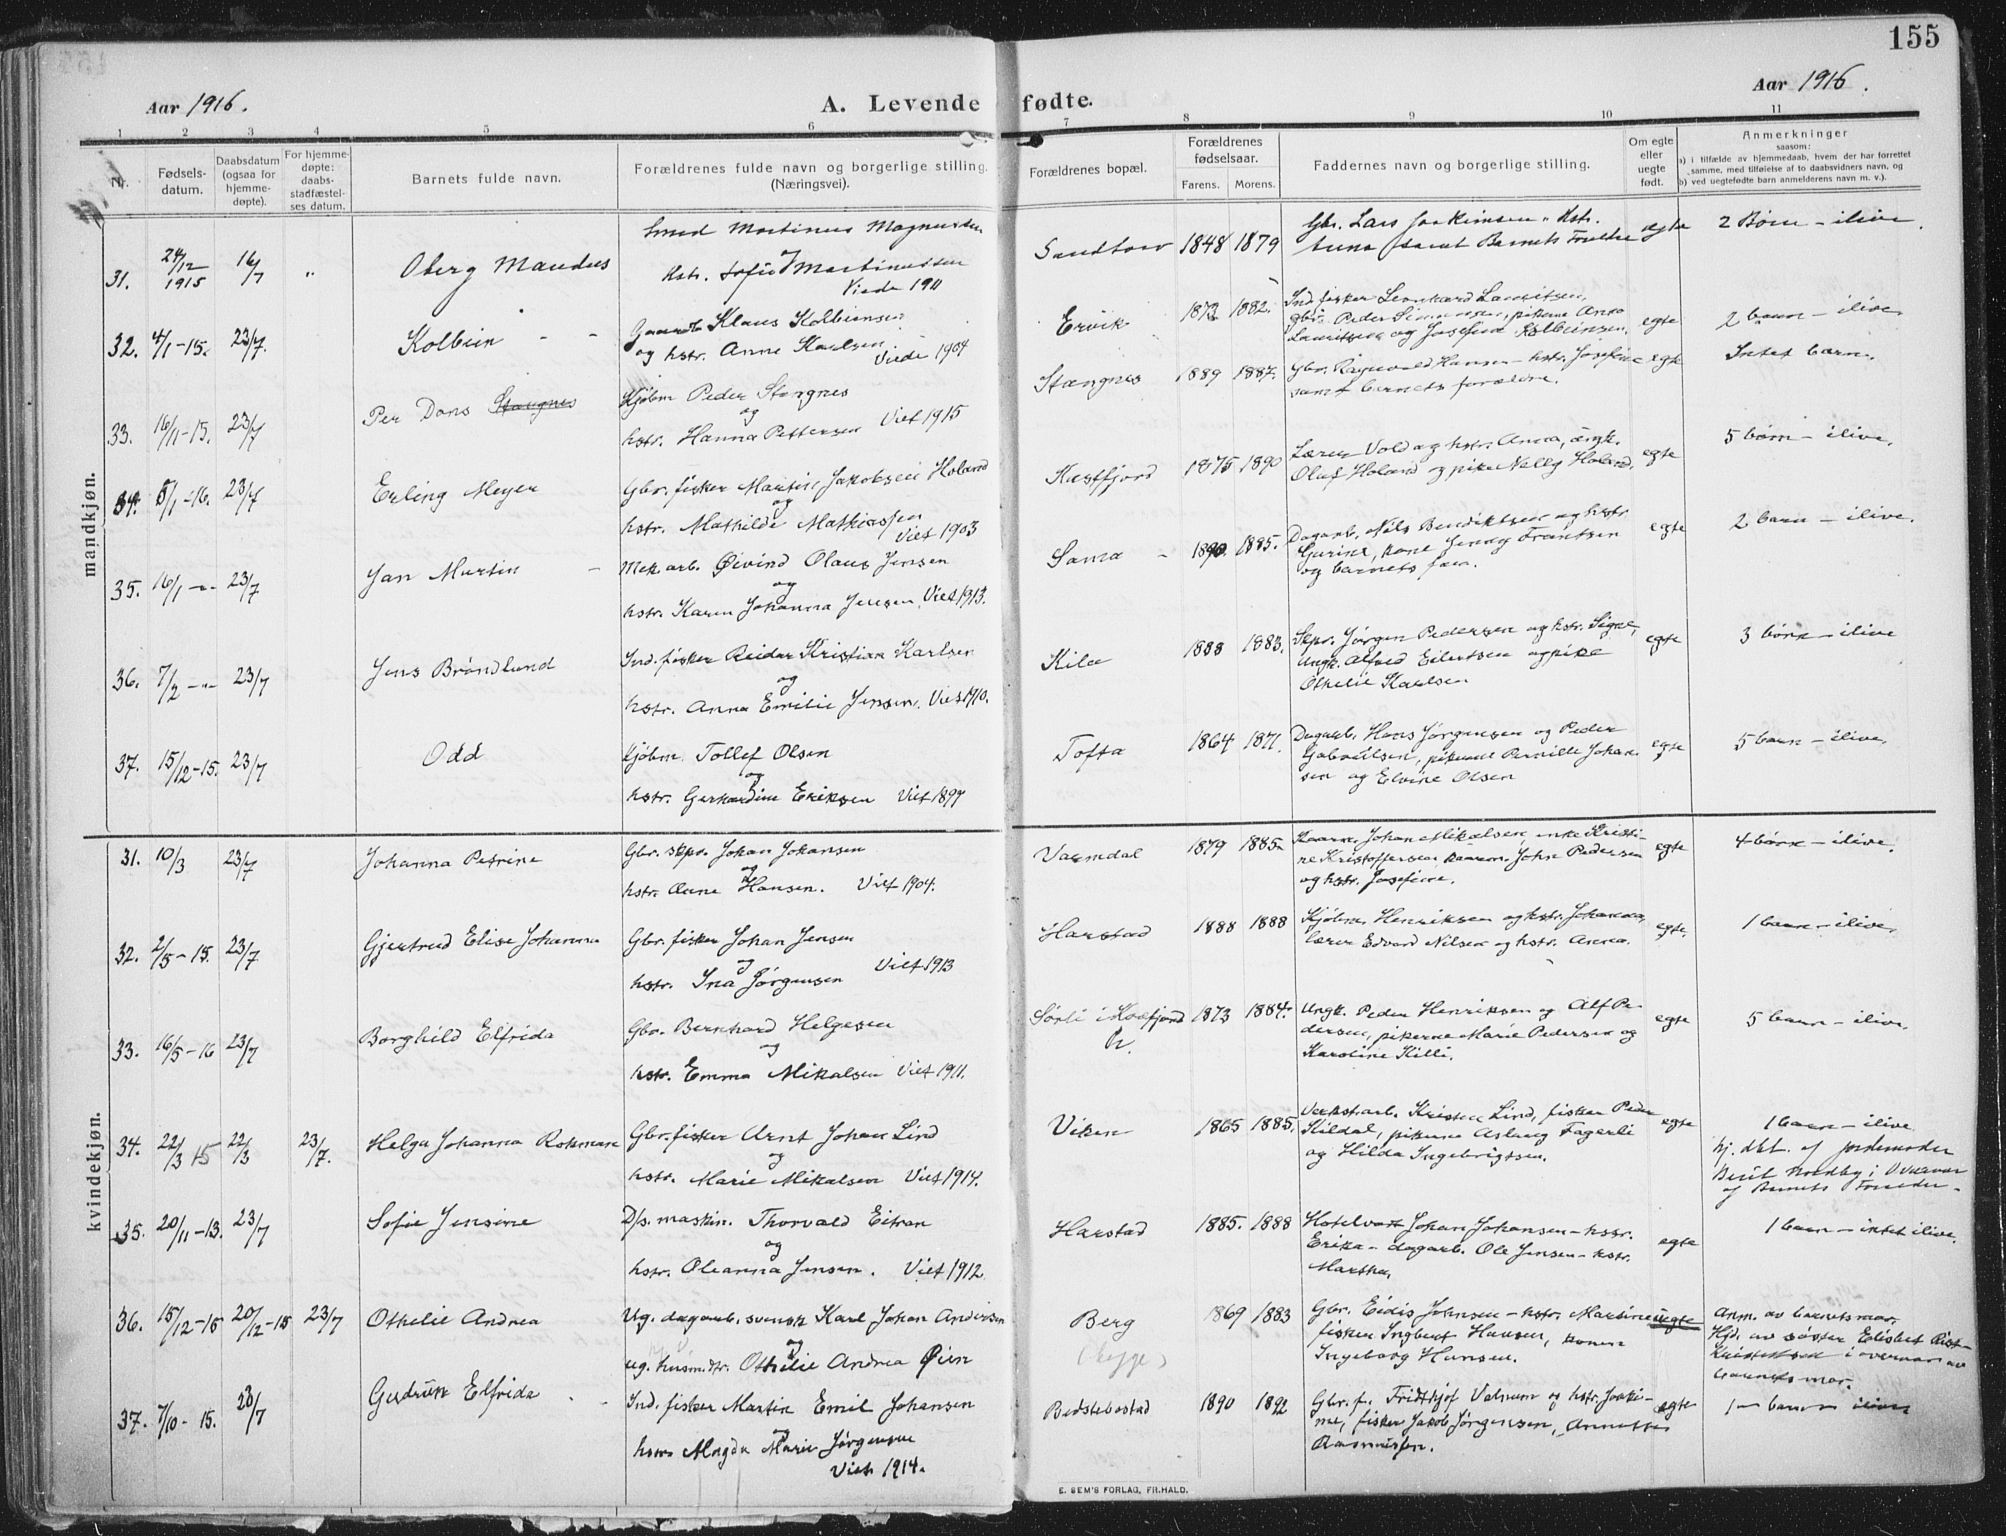 155
Aar 1916.
A. Levende fødte.
Aar 1916.
1 2 3 4 5 6 7 8 9 10 11
Nr.
Fødsels-
datum.
Daabsdatum
(ogsaa for
hjemme-
døpte).
For hjemme-
døpte:
daabs-
stadfæstel-
ses datum.
Barnets fulde navn.
Forældrenes fulde navn og borgerlige stilling.
(Næringsvei).
Forældrenes bopæl.
Forældrenes
fødselsaar.
Farens. Morens.
Faddernes navn og borgerlige stilling.
Om egte
eller
uegte
født.
Anmerkninger
saasom:
a) i tilfælde av hjemmedaab, hvem der har forrettet
samme, med tilføielse af to daabsvidners navn, og
b) ved uegtefødte barn anmelderens navn m. v.).
mandkjøn.
31. 24/12 1915 16/7 " Oberg Mandus
Smed Martinus Magnussen
og
Hstr. Sofie Martinussen
Viede 1911
Sandtorv 1848 1879
Gbr. Lars Joakimsen, Hstr.
Anna samt Barnets Forældre
egte 2 Børn - ilive.
32. 4/1-15. 23/7. Kolbein
Klaus Kolbeinsen
og hstr. Anne Karlsen
Viede 1904
Ervik 1873 1882.
Ind. fisker Leonhard Lauritsen,
gbr. Peder Simonsen, pikerne Anna
Lauritsen og Josefine Kolbeinsen.
egte 2 barn - ilive
33. 16/11-15. 23/7 Per Dons Stangnes
Kjøbm Peder Stangnes
og
hstr. Hanna Pettersen Viet 1915
Stangnes 1889 1887.
Gbr. Ragnvald Hansen - hstr. Josefine
samt barnets forældre.
egte Intet barn.
34. 5/1-16. 23/7 Erling Meyer
Gbr. fisker Martin Jakobsen Holand
og
hstr. Mathilde Mathiassen
Viet 1903
Kasfjord 1875 1890
Lærer Vold og hstr. Anna, ungk.
Olaf Holand og pike Nelly Holand.
egte 5 børn - ilive.
35. 16/1 -"- 23/7 Jan Martin
Mek. arb. Øivind Olaus Jensen
og
hstr. Karen Johanna Jensen. Viet 1913.
Sama 1890 1885.
Dagarb. Nils Bendiktsen og hstr
Gurine, kone Jenny Frantsen
og barnets far.
egte 2 barn - ilive.
36. 7/2 -"- 23/7 Jens Brøndlund
Ind. fisker Reidar Kristian Karlsen
og
hstr. Anna Emilie Jensen. Viet 1910.
Kila 1888 1883.
Skpr. Jørgen Pedersen og hstr. Signe,
Ungk. Alfred Eilertsen og pike
Othelie Karlsen
egte 3 børn - ilive
37. 15/12-15. 23/7 Odd
Kjøbm. Tollef Olsen
og
hstr. Gerhardine Eriksen Viet 1897
Tofta 1864 1871.
Dagarb. Hans Jørgensen og Peder
Gabrielsen, pikerne Pernille Johan-
sen og Elvine Olsen
egte 5 barn - ilive.
kvindekjøn.
31. 10/3 23/7 Johanna Petrine
Gbr. skpr. Johan Johansen
og
hstr. Anne Hansen. Viet 1904.
Varmdal 1879 1885.
Johan Mikalsen, enke Kristi-
ne Kristoffersen, John Pedersen
og hstr. Josefine.
egte 4 børn - ilive.
32. 2/5-15. 23/7 Gjertrud Elise Johanna
Gbr. fisker Johan Jensen
og
hstr. Ina Jørgensen Viet 1913
Harstad 1888 1888
Kjøbm. Henriksen og hstr. Johanna,
lærer Edvard Nilsen og hstr. Anna.
egte. 1 barn - ilive.
33. 16/5-16 23/7 Borghild Elfrida
Gbr. Bernhard Helgesen
og
hstr. Emma Mikalsen Viet 1911.
Sørli i 1873 1884.
Ungk. Peder Henriksen og Alf Pe-
dersen, pikerne Marie Pedersen og
Karoline Killi.
egte 5 barn - ilive.
34. 22/3 15 22/3 23/7. Helga Johanna
Gbr. fisker Arnt Johan Lind
og
hstr. Marie Mikalsen Viet 1914.
Viken 1865 1885.
Verkst.arb. Kristen Lind, fisker Peder
Kildal, pikerne Aslaug Fagerli
og Hilda Ingebrigtsen.
egte 1 barn - ilive
hj. dbt. af jordemoder
Berit Nordby i Overvær
af Barnets Forældre.
35. 20/11-13. 23/7 Sofie Jensine
D/s. maskin. Thorvald Eitran
og
hstr. Oleanna Jensen. Viet 1912
Harstad 1885. 1888
Hotelvært Johan Johansen - hstr.
Erika - dagarb. Ole Jensen - hstr.
Martha.
egte 1 barn - intet ilive.
36. 15/12-15 20/12-15 23/7 Othelie Andrea
Ug. dagarb. svensk Karl Johan Andersen
og
ug. husm.dtr. Othelie Andrea Øien
Berg 1869 1883
Gbr. Eidis Johnsen - hstr. Martine
fisker Ingbert Hansen, konen
Ingeborg Hansen.
uegte Anm. av barnets mor.
Hjd. av søster Elisbet
i overvær av
barnets mor.
37. 7/10-15. 23/7 Gudrun Elfrida
Ind. fisker Martin Emil Johansen
og
Magda Marie Jørgensen
Viet 1914.
Bedstebostad 1890 1892
Gbr. f. Fridthjof Valnum og hstr. Joaki-
me, fisker Jakob Jørgensen, Annette
Rasmussen.
egte 1 barn ilive
E. SEM'S FORLAG, FR.HALD.